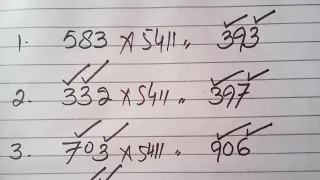 1. 583 × 5411 = 393
2. 332 × 5411 = 397
3. 703 × 5411 = 906